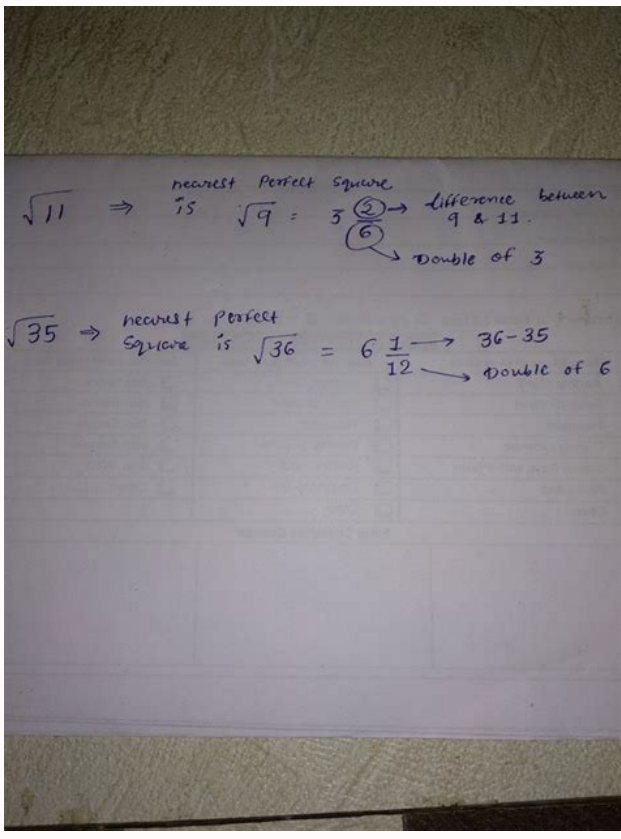 √11 ⇒ nearest Perfect Square
is √9 = 3 2/6 → difference between
9 & 11.
→ Double of 3
√35 ⇒ nearest perfect
Square is √36 = 6 1/12 → 36-35
→ Double of 6